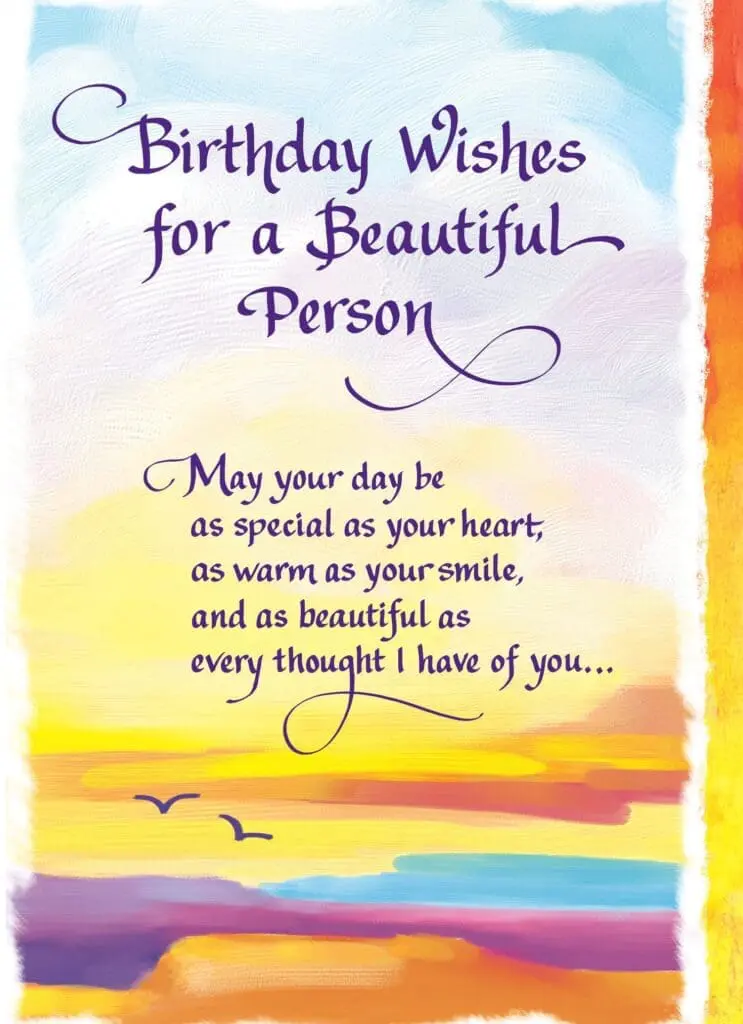 Birthday Wishes
for a Beautiful
Person
May your day be
as special as your heart,
as warm as your smile,
and as beautiful as
every thought I have of you...